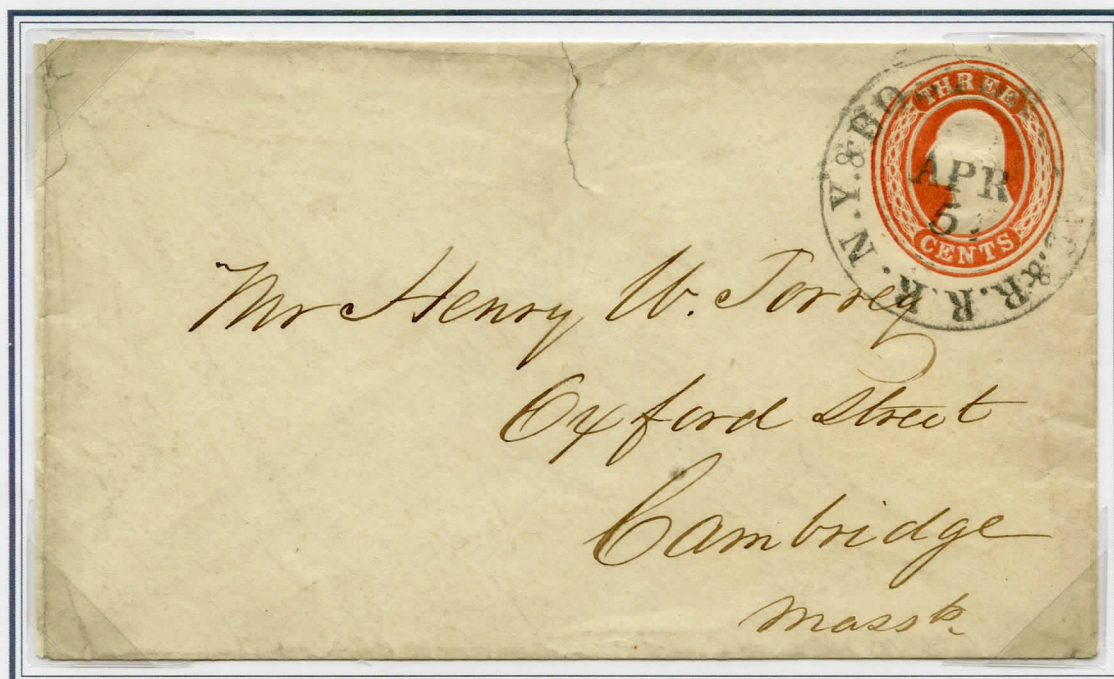 THREE
CENTS
N.Y. & BOSTON
& R.R.R.
APR
5
Mr Henry W. Torrey
Oxford Street
Cambridge
Masss.